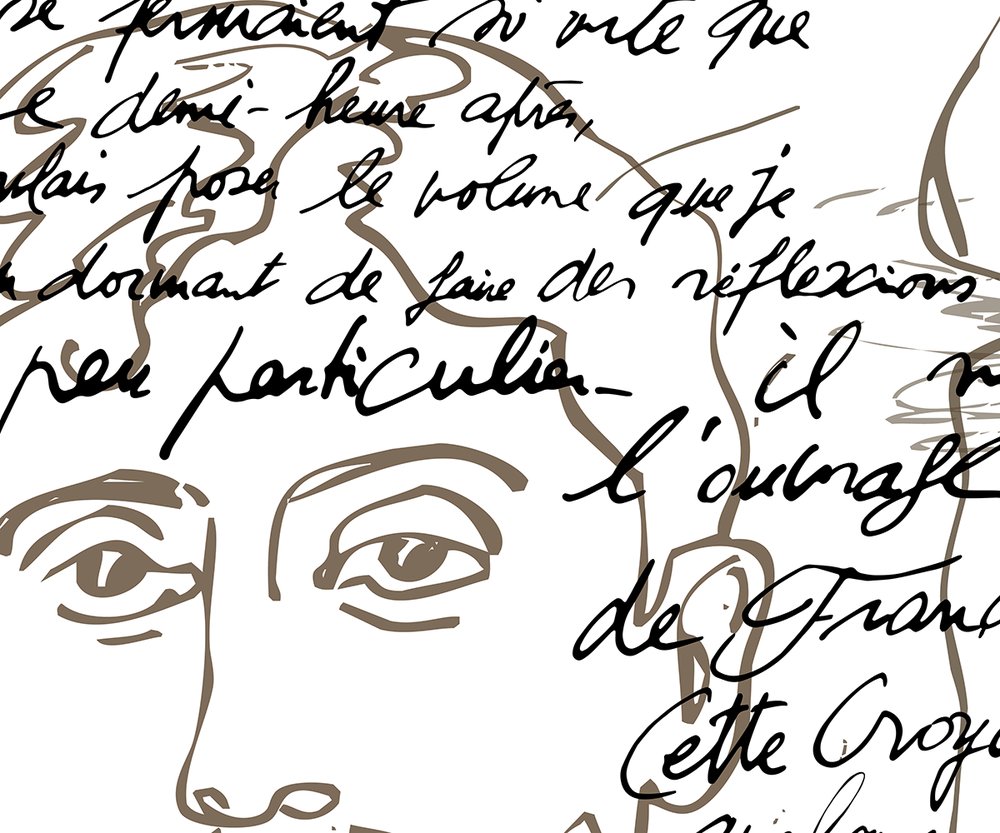 se fermaient si vite que
e demi-heure après,
ulais poser le volume que je
n dormant de faire des réflexions
peu particulier- il m
l'ouvrage
de Franç
Cette Croya